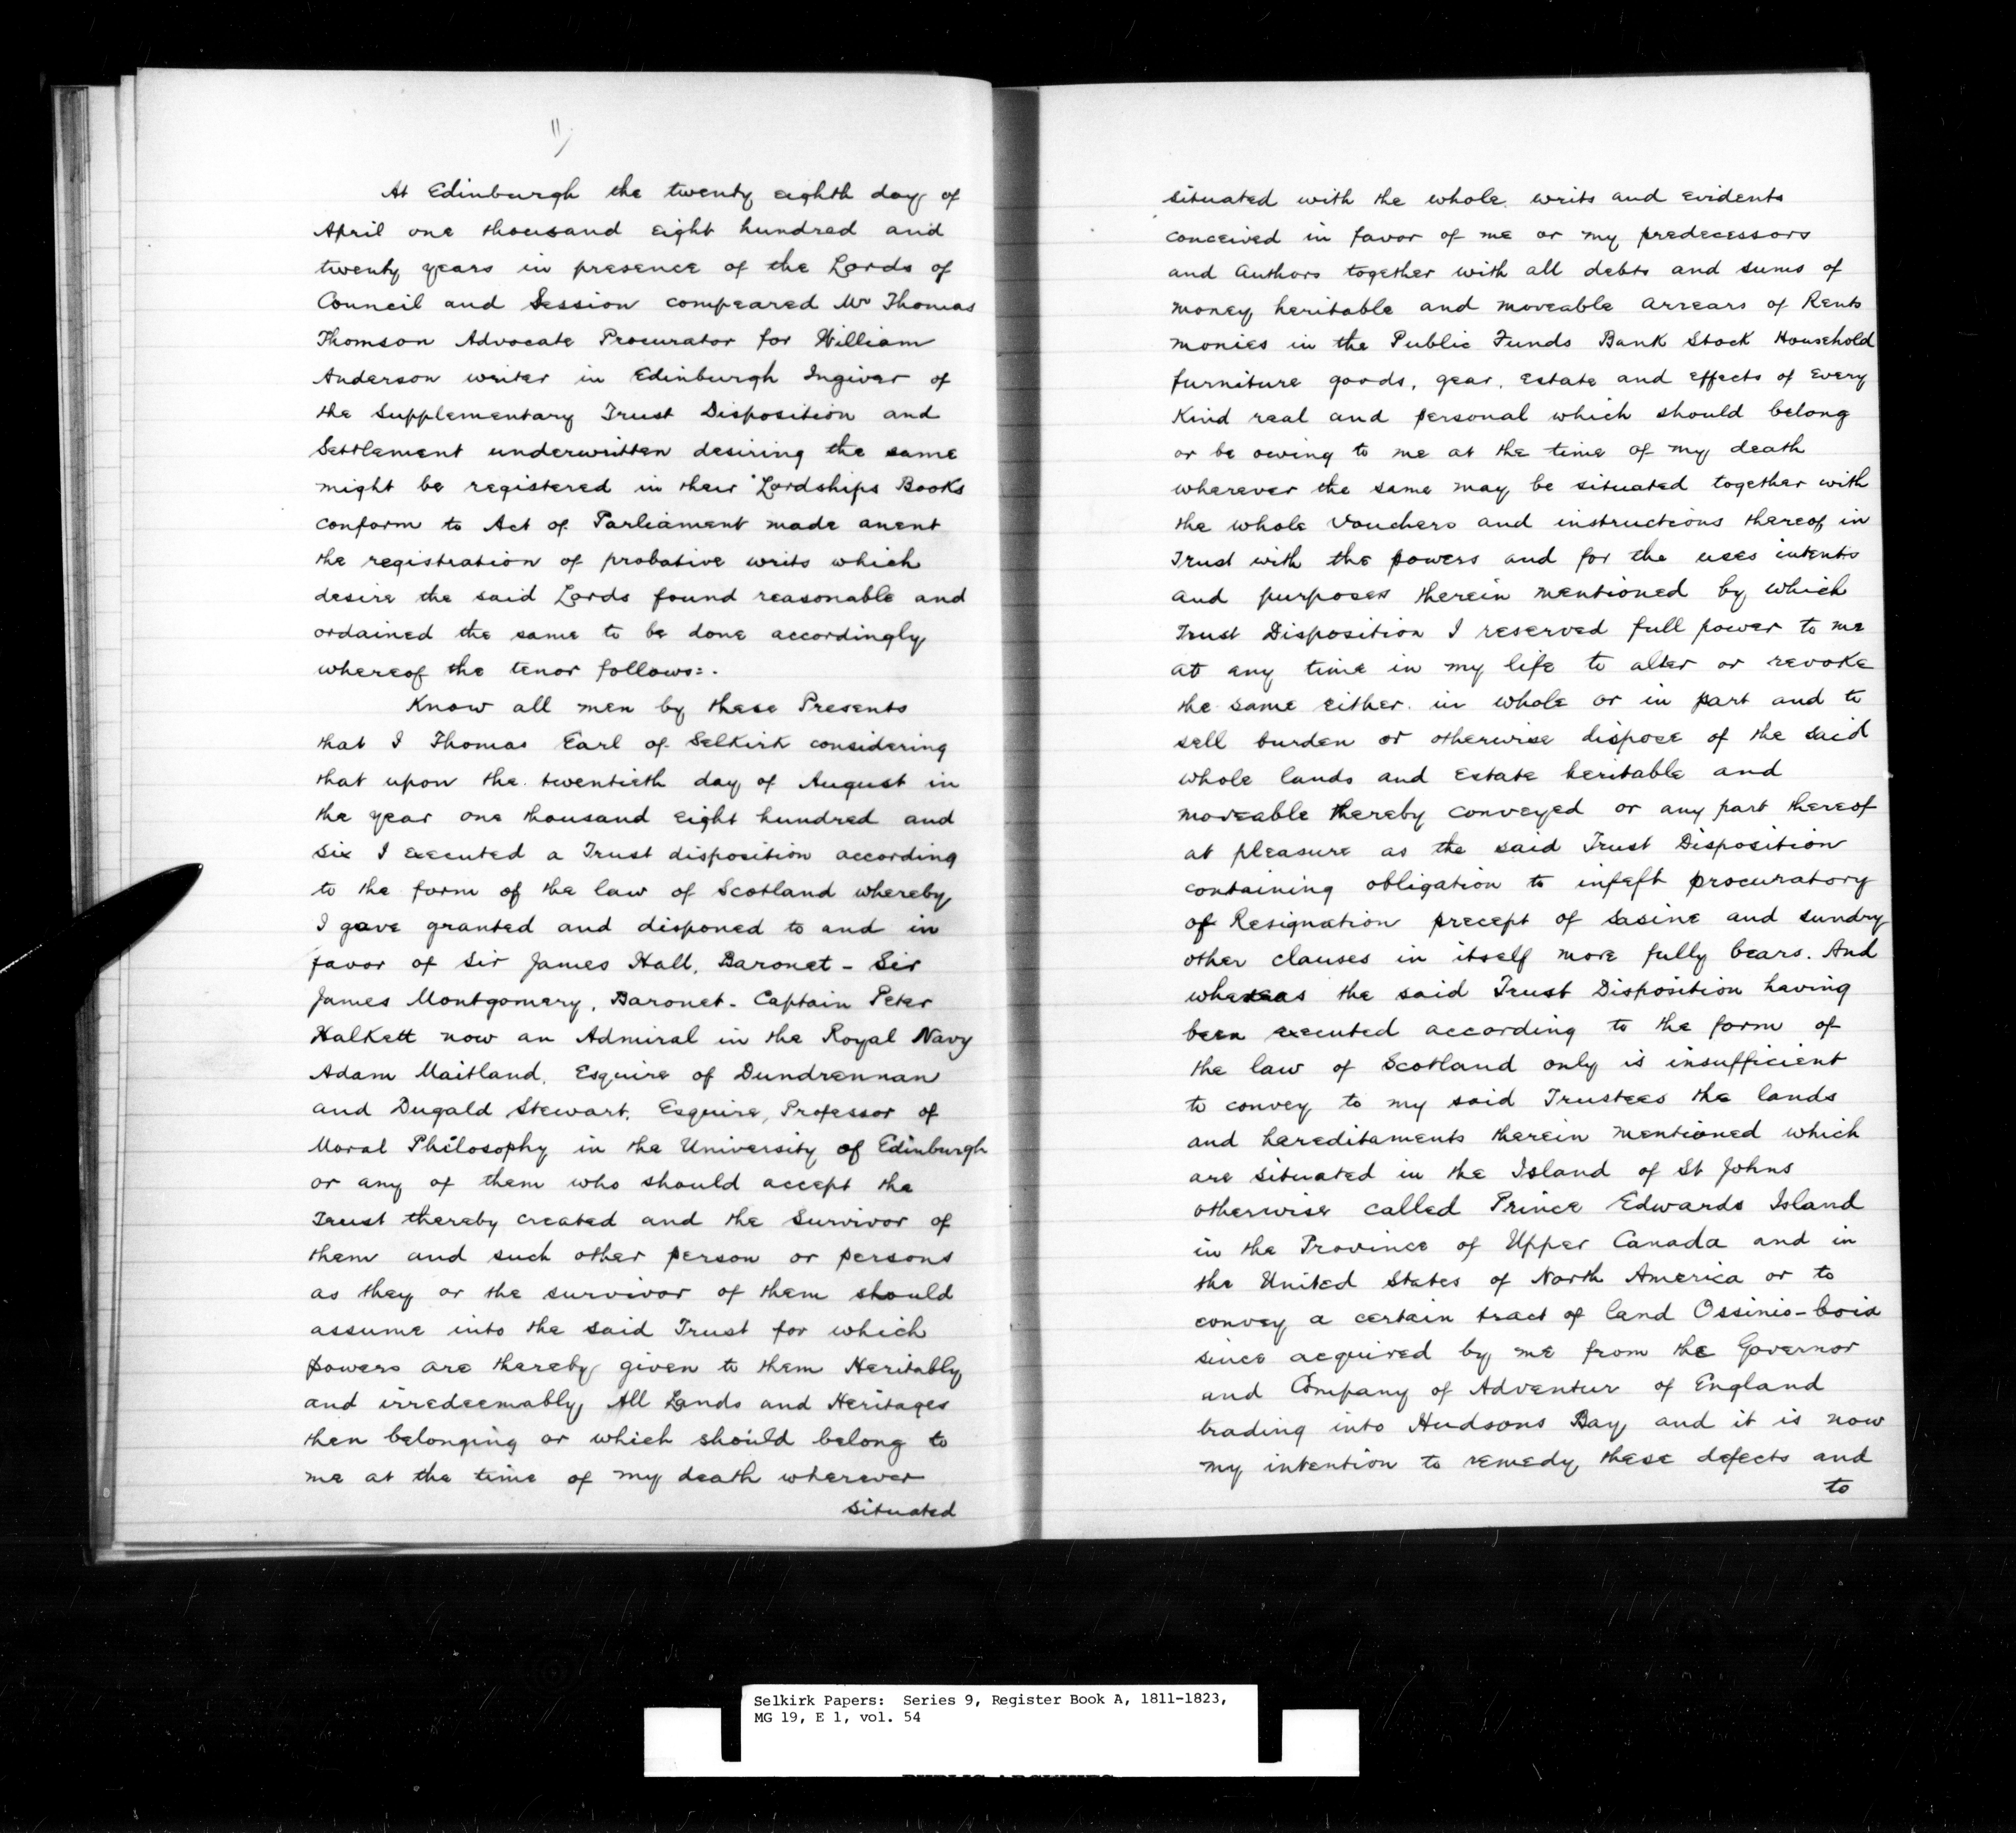 11
At Edinburgh the twenty eighth day of
April one thousand eight hundred and
twenty years in presence of the Lords of
Council and Session compeared Mr Thomas
Thomson Advocate Procurator for William
Anderson writer in Edinburgh Ingiver of
the Supplementary Trust Disposition and
Settlement underwritten desiring the same
might be registered in their Lordships Books
conform to Act of Parliament made anent
the registration of probative writs which
desire the said Lords found reasonable and
ordained the same to be done accordingly
whereof the tenor follows:-
Know all men by these Presents
that I Thomas Earl of Selkirk considering
that upon the twentieth day of August in
the year one thousand eight hundred and
six I executed a Trust disposition according
to the form of the law of Scotland whereby
I gave granted and disponed to and in
favor of Sir James Hall, Baronet - Sir
James Montgomery, Baronet - Captain Peter
Halkett now an Admiral in the Royal Navy
Adam Maitland, Esquire of Dundrennan
and Dugald Stewart, Esquire, Professor of
Moral Philosophy in the University of Edinburgh
or any of them who should accept the
Trust thereby created and the Survivor of
them and such other person or persons
as they or the survivor of them should
assume into the said Trust for which
powers are thereby given to them Heritably
and irredeemably All Lands and Heritages
then belonging or which should belong to
me at the time of my death wherever
situated
situated with the whole writs and evidents
conceived in favor of me or my predecessors
and Authors together with all debts and sums of
money heritable and moveable arrears of Rents
monies in the Public Funds Bank Stock Household
furniture goods, gear, estate and effects of every
Kind real and personal which should belong
or be owing to me at the time of my death
wherever the same may be situated together with
the whole Vouchers and instructions thereof in
Trust with the powers and for the uses intents
and purposes therein mentioned by which
Trust Disposition I reserved full power to me
at any time in my life to alter or revoke
the same either in whole or in part and to
sell burden or otherwise dispose of the said
whole lands and Estate heritable and
moveable thereby conveyed or any part thereof
at pleasure as the said Trust Disposition
containing obligation to infeft procuratory
of Resignation precept of Sasine and sundry
other clauses in itself more fully bears. And
whereas the said Trust Disposition having
been executed according to the form of
the law of Scotland only is insufficient
to convey to my said Trustees the lands
and hereditaments therein mentioned which
are situated in the Island of St Johns
otherwise called Prince Edwards Island
in the Province of Upper Canada and in
the United States of North America or to
convey a certain tract of land Ossinio-boia
since acquired by me from the Governor
and Company of Adventur of England
trading into Hudsons Bay and it is now
my intention to remedy these defects and
to
Selkirk Papers: Series 9, Register Book A, 1811-1823,
MG 19, E 1, vol. 54